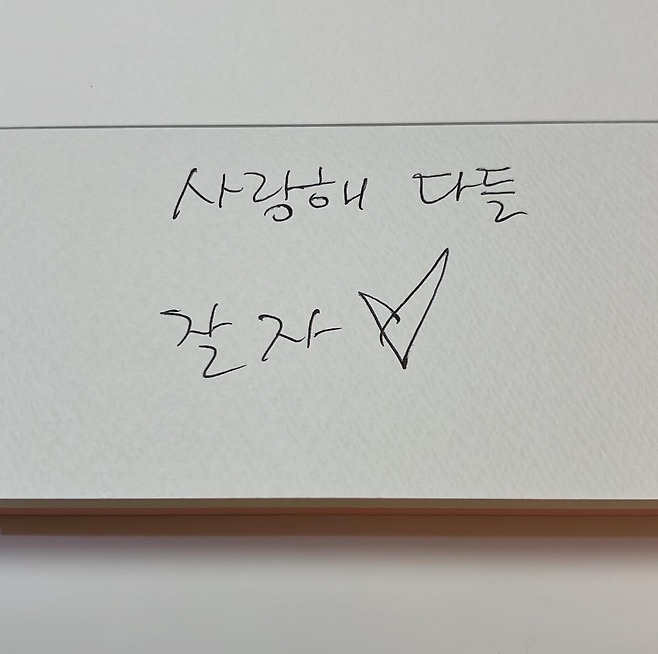 사랑해 다들
잘자